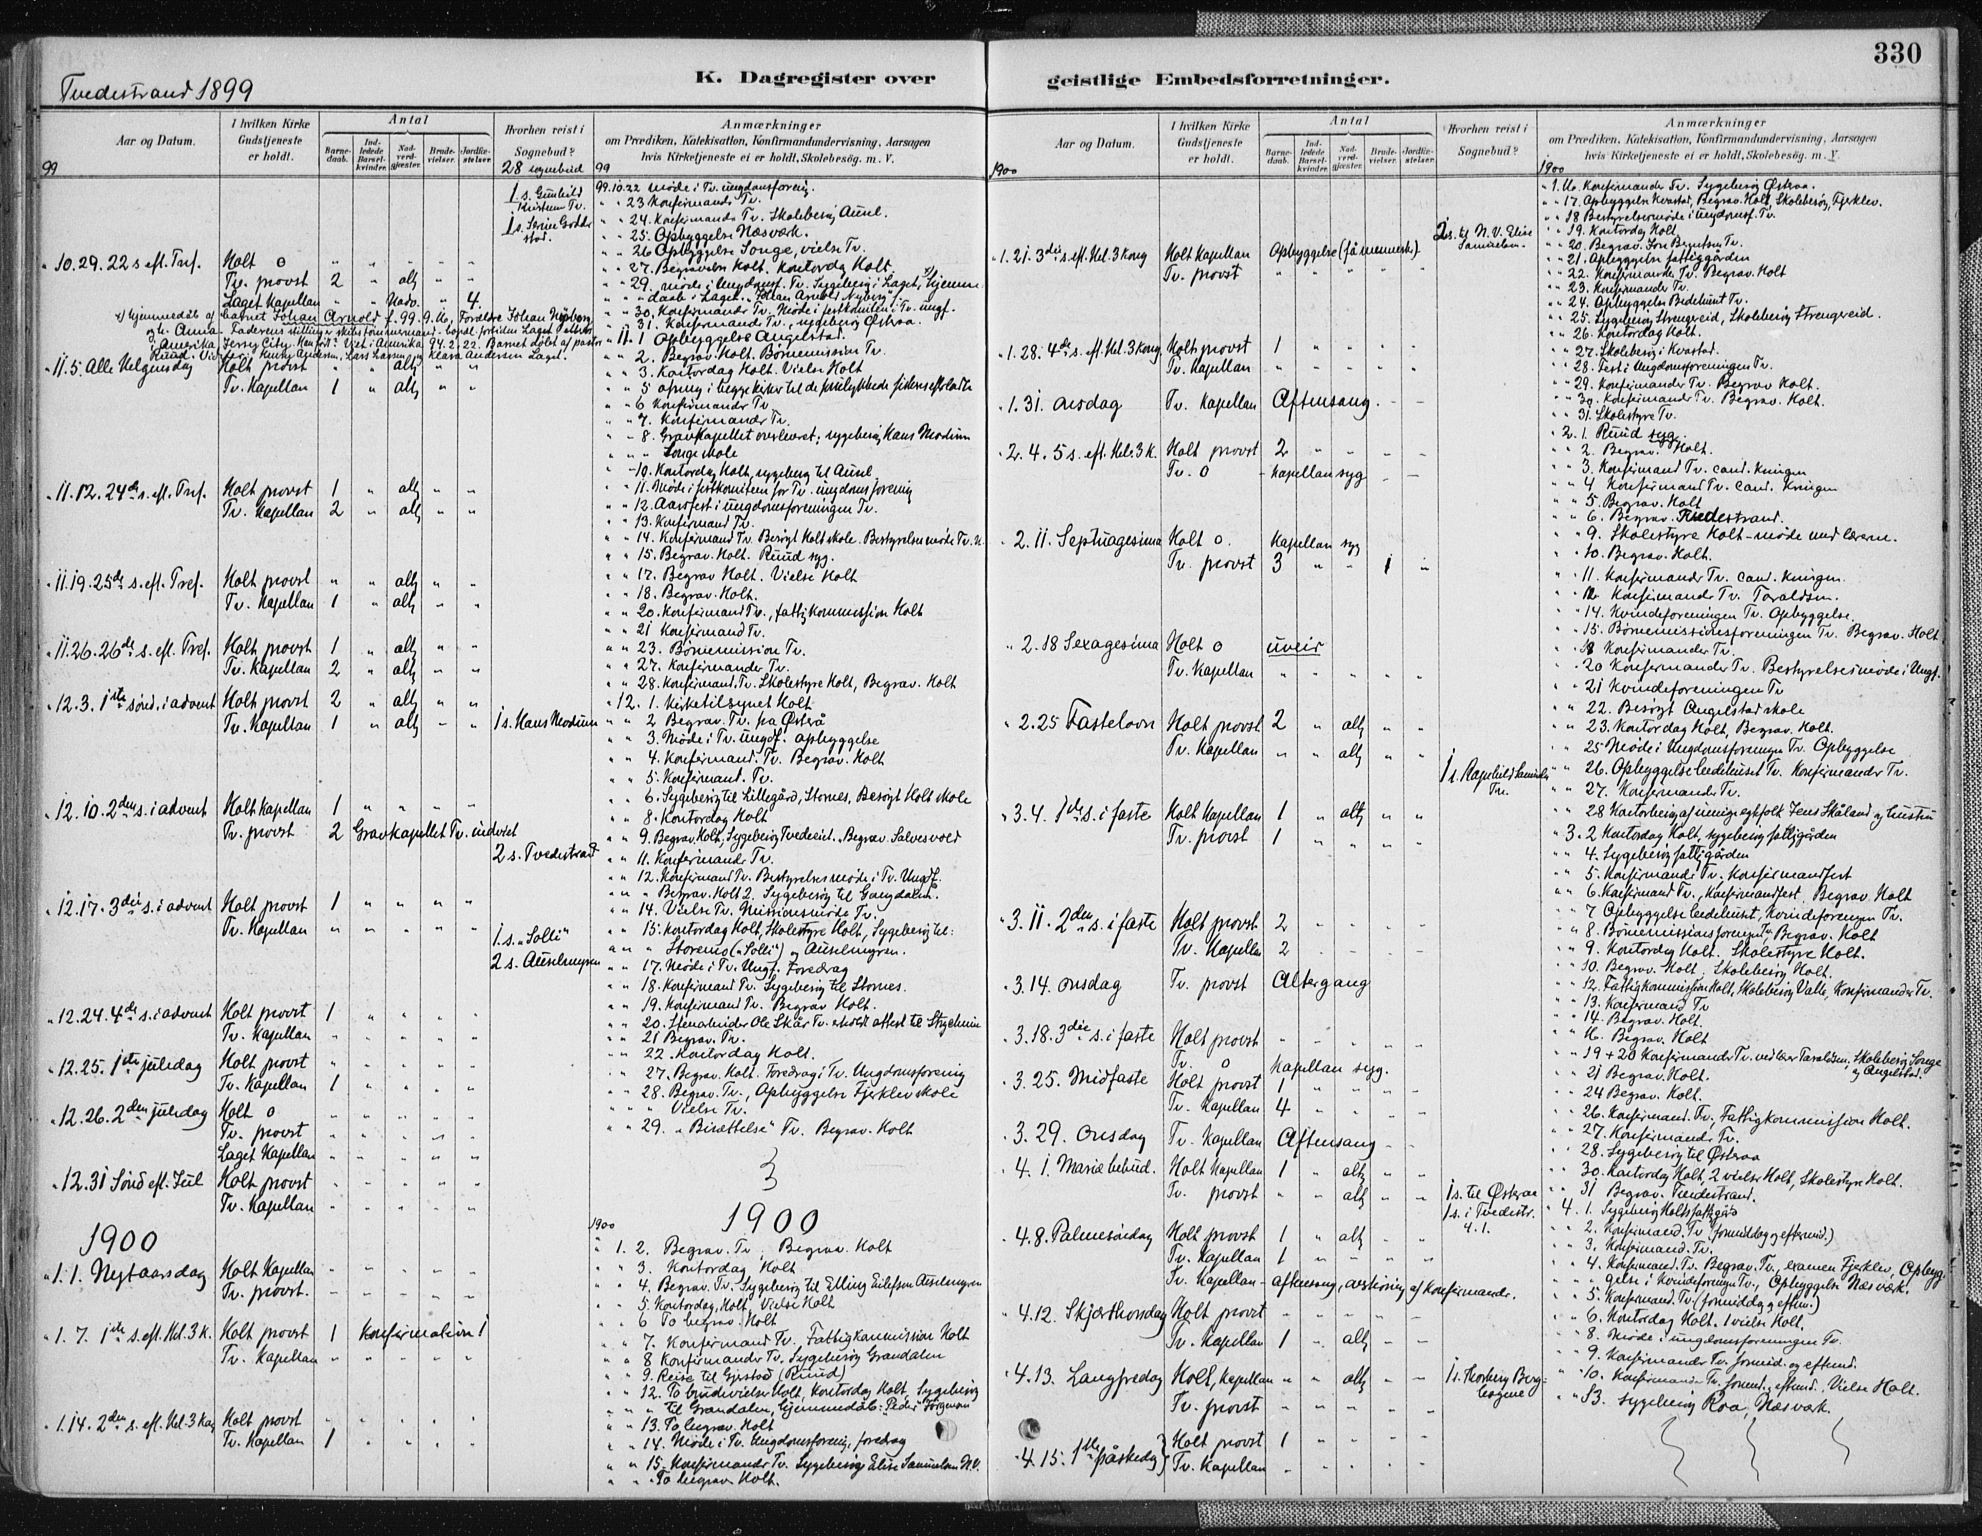 330
K. Dagregister over geistlige Embedsforretninger.
Tvedestrand 1899
Aar og Datum.
I hvilken Kirke Gudstjeneste er holdt.
Antal
Barnedaab.
Indledede Barselkvinder.
Nadverdgjester.
Brudevielser.
Jordfæstelser.
Hvorhen reist i Sognebud?
28 sognebud
Anmærkninger
om Prædiken, Katekisation, Konfirmandundervisning, Aarsagen
hvis Kirketjeneste ei er holdt, Skolebesøg. m. V.
99
99
1 s. Gunhild
Tv.
1 s.
10.29. 22 s eft. Tref. Holt 0 " " " " "
Tv. provst 2 " altg " "
Laget Kapellan " " Nadv. " 4.
11.5. Alle Helgensdag Holt provst " " altg " "
Tv. Kapellan 1 " altg " "
11.12. 24de s. eft. Tref. Holt provst 1 " altg " "
Tv. Kapellan 2 " altg " "
11.19. 25de s. eft. Tref. Holt provst " " altg " "
Tv. Kapellan 1 " altg " "
11.26. 26de s. eft. Tref. Holt provst 1 " altg " "
Tv. Kapellan 2 " altg " "
12.3. 1ste sønd. i advent Holt provst 2 " altg " "
Tv. Kapellan 1 " altg " " 1 s. Hans Modum
12.10. 2den s. i advent Holt Kapellan 1 " " " "
Tv. provst 2 Gravkapellet Tv. indviet
2 s. Tvedestrand
12.17. 3die s. i advent Holt provst 1 " " " "
Tv. Kapellan " " " " "
1 s. "Solli"
2 s. Auselmyren
12.24. 4de s. i advent Holt provst 1 " " " "
Tv. Kapellan " " " " "
12.25. 1ste juledag Holt provst " " " " "
Tv. Kapellan 1 " " " "
12.26. 2den juledag Holt 0 " " " " "
Tv. provst " " " " "
Laget Kapellan " " " " "
12.31 Sønd eft. Jul Holt provst " " " " "
Tv. Kapellan " " " " "
1900
1.1. Nytaarsdag Holt Kapellan
Tv. provst.
1.7. 1ste s. eft. Hel. 3 K. Holt provst 1 Konfirmation 1
Tv. Kapellan " " " " "
1.14. 2den s. eft. Hel. 3 Kong Holt provst " " " " "
Tv. Kapellan 1 " " " "
99.10.22 Møde i Tv. ungdomsforenig.
" " 23 Konfirmands Tv.
" " 24. Konfirmands Tv. Skolebesøg Ausel.
" " 25. Opbyggelse Næsværk.
" " 26 Opbyggelse Songe, vielse Tv.
" " 27. Begravelse Holt. Kontordag Holt.
" " 29. Møde i Ungdomsf. Tv. Sygebesøg i Laget,
" " 31. Konfirmands Tv., sygebesøg Østraa.
" 11. 1 Opbyggelse Angelstad.
" " 2. Begrav. Holt. Børnemission Tv.
" " 3. Kontordag Holt. Vielse Holt
" " 6 Konfirmander Tv
" " 7. Konfirmander Tv.
" " 8. Gravkapellet overleveret; sygebesøg Hans Modum
" " Songe skole
" " 10. Kontordag Holt, sygebesøg til Ausel
" " 11. Møde i festkomiteen for Tv. ungdomsforening
" " 12. Aarsfest i ungdomsforeningen Tv.
" " 13. Konfirmand Tv.
" " 14. Konfirmand Tv. Besøgt Holt skole. Bestyrelsesmøde Tv. U.
" " 15. Begrav. Holt. Ruud syg.
" " 17. Begrav Holt. Vielse Holt
" " 18. Begrav. Holt.
" " 20. Konfirmand Tv., fattigkommission Holt
" " 21 Konfirmand Tv.
" " 23. Børnemission Tv.
" " 27. Konfirmander Tv.
" " 28. Konfirmand. Tv. Skolestyre Holt, Begrav. Holt
" 12. 1. Kirketilsynet Holt
" " 2 Begrav. Tv. paa Østrå
" " 3. Møde i Tv. ungdf. opbyggelse
" " 4. Konfirmand. Tv. Begrav. Holt
" " 5. Konfirmant. Tv.
" " 6. Sygebesøg til Lillegård, Stornes, Besøgt Holt skole
" " 8. Kontordag Holt
" " 9. Begrav. Holt, Sygebesøg Tvedestrand. Begrav Salvesvold
" " 11. Konfirmander Tv.
" " 12. Konfirmand Tv. Bestyrelsesmøde i Tv. Ungdf.
" " " Begrav. Holt 2. Sygebesøg til Gangdalen.
" " 14. Vielse Tv. Missionsmøde Tv.
" " 15. Kontordag Holt, Skolestyre Holt, Sygebesøg til:
" " " Storenes ("Solli") og Auselmyren.
" " 17. Møde i Tv. Ungf. Foredrag
" " 18. Konfirmand Tv. Sygebesøg til Stornes.
" " 19. Konfirmand Tv. Begrav Holt.
" " 20. Stenarbeider Ole Skår Tv.
" " 21 Begrav. Tv.
" " 22. Kontordag Holt.
" " 27. Begrav. Holt. Foredrag i Tv. Ungdomsforening
" " 28. Begrav. Tv., Opbyggelse Fjerklev skole
" " " Vielse Tv.
" " 29. "Birættelse" Tv. Begrav. Holt
1900 1900
" 1. 2. Begrav. Tv., Begrav. Holt
" " 3. Kontordag Holt
" " 4. Begrav. Tv. Sygebesøg til Elling Eilefsen Auselmyren
" " 5. Kontordag, Holt, Vielse Holt
" " 6 To begrav. Holt
" " 7. Konfirmand Tv. Fattigkommission Holt
" " 8 Konfirmander Tv. Sygebesøg Grandalen
" " 9. Reise til Gjerstad (Ruud)
" " 12. To brudevielser Holt, Kontordag Holt, Sygebesøg
" " " til Grandalen, hjemmedåb: "Peder" Jørgensen
" " 13. To begrav. Holt
" " 14. Møde i Tv. Ungdomsforenig, foredrag
" " 15. Konfirmander Tv. Sygebesøg Elise Samuelsen N.V.
" " " To begrav. Holt.
Aar og Datum.
I hvilken Kirke Gudstjeneste er holdt.
Antal
Barnedaab.
Indledede Barselkvinder.
Nadverdgjester.
Brudevielser.
Jordfæstelser.
Hvorhen reist i Sognebud?
Anmærkninger
om Prædiken, Katekisation, Konfirmandundervisning, Aarsagen
hvis Kirketjeneste ei er holdt, Skolebesøg. m. V.
1900
1900
1.21. 3die s. eft. Hel. 3 Kong Holt Kapellan Opbyggelse (få mennesk.)
Tv. provst " " " " "
2 s. til N. V. Elise
Samuelsen.
1.28. 4de s. eft. Hel. 3 Kong Holt provst 1 " " " "
Tv. Kapellan " " " " "
1.31. Onsdag Tv. Kapellan Aftensang
2.4. 5 s. eft. Hel. 3 K. Holt provst 2 " " " "
Tv. 0 - Kapellan syg
2.11. Septuagesima Holt 0. Kapellan syg
Tv. provst 3 " " 1 "
2.18 Sexagesima Holt 0 uveir
Tv. Kapellan " " " " "
2.25 Fastelavn Holt provst 2 " altg " "
Tv. Kapellan " " altg " "
1 s. Ragnhild
Tv.
3.4. 1ste s. i faste Holt Kapellan 1 " altg " "
Tv. provst 1 " " " "
3.11. 2den s. i faste Holt provst 2
Tv. Kapellan 2
3.14. Onsdag Tv. provst Altergang
3.18. 3die s. i faste Holt provst
Tv. 0 Kapellan syg.
3.25. Midfaste Holt provst 1 " " " "
Tv. Kapellan 4 " " " "
3.29. Onsdag Tv. Kapellan Aftensang
4.1. Mariæ bebud. Holt Kapellan 1 " altg " "
Tv. provst " " altg " "
1 s. til Østeraa
1 s. i Tvedestr.
4.1.
4.8. Palmesøndag Holt provst 1 " altg " "
Tv. Kapellan 1 " " " "
Tv. Kapellan - aftensang, overhøring af Konfirmander.
4.12. Skjærthorsdag Holt provst
Tv. Kapellan 1 " altg " "
4.13. Langfredag Holt, Kapellan " " altg " "
Tv. provst
1 s. Thorberg Berg-
4.15. 1ste påskedag Holt provst 1
Tv. Kapellan
" 1. 16. Konfirmander Tv. Sygebesøg Østraa.
" " 17. Opbyggelse Kvastad, Begrav. Holt, Skolebesøg, Fjerklev.
" " 18 Bestyrelsesmøde i ungdomsf. Tv.
" " 19. Kontordag Holt
" " 20. Begrav. Berntsen Tv.
" " 21. Opbyggelse fattiggården
" " 22. Konfirmander Tv. Begrav. Holt
" " 23. Konfirmander Tv.
" " 24. Opbyggelse Bedehuset Tv.
" " 25. Sygebesøg Strengereid, Skolebesøg Strengereid.
" " 26. Kontordag Holt.
" " 27. Skolebesøg i Kvastad.
" " 28. Fest i Ungdomsforeningen Tv.
" " 29. Konfirmander Tv. Begrav Holt.
" " 30. Konfirmander Tv. Begrav. Holt.
" " 31. Skolestyre Tv.
" 2. 1. Ruud syg.
" " 2. Begrav. Holt.
" " 3. Konfirmand Tv. cand. Kningen
" " 4 Konfirmand Tv. cand. Kningen
" " 5. Begrav. Holt
" " 6. Begrav. Tvedestrand.
" " 9. Skolestyre Holt - møde med lærerne.
" " 10. Begrav. Holt.
" " 11. Konfirmander Tv. cand. Kningen
" " 12 Konfirmander Tv. Toraldsen.
" " 14. Kvindeforeningen Tv. Opbyggelse.
" " 15. Børnemissionsforeningen Tv. Begrav. Holt
" " 18 Konfirmander Tv.
" " 20 Konfirmander Tv. Bestyrelsesmøde i Ungf.
" " 21 Kvindeforeningen Tv
" " 22. Besøgt Angelstad skole
" " 23. Kontordag Holt, Begrav. Holt.
" " 25 Møde i Ungdomsforeningen Tv. Opbyggelse
" " 26. Opbyggelse bedehuset Tv. Konfirmander Tv.
" " 27. Konfirmander Tv.
" " 28 Kontorbesøg af uenige egtefolk Jens Skåland og hustru
" 3. 2 Kontordag Holt, sygebesøg fattigården
" " 4. Sygebesøg fattigården
" " 5. Konfirmander Tv. Konfirmandfest
" " 6. Konfirmand Tv., Konfirmandfest, Begrav. Holt
" " 7 Opbyggelse bedehuset, Kvindeforeningen Tv.
" " 8. Børnemissionsforeningen Tv, Begrav. Holt
" " 9. Kontordag Holt. Skolestyre Holt.
" " 10. Begrav. Holt; Skolebesøg Holt.
" " 12. Fattigkommission Holt, Skolebesøg Valle, Konfirmander Tv.
" " 13. Konfirmand Tv
" " 14. Begrav. Holt.
" " 16. Begrav. Holt
" " 19 + 20 Konfirmander Tv. ved lærer Taraldsen, Skolebesøg Songe
og Angelstad.
" " 21 Begrav. Holt.
" " 24 Begrav. Holt.
" " 26. Konfirmand. Tv., Fattigkommission Holt.
" " 27. Konfirmander Tv.
" " 28. Sygebesøg til Østeraa
" " 30. Kontordag Holt, 2 vielser Holt, Skolestyre Holt.
" " 31 Begrav. Tvedestrand.
" 4. 1. Sygebesøg Holts fattiggård
" " 2. Konfirmand. Tv (formiddag og eftermid.)
" " 3. Konfirmand. Tv.
" " 4. Konfirmand. Tv. Begrav. Tv., examen Fjerklev, Opbyg-
" " gelse i Kvindeforeningen Tv., Opbyggelse Næsværk.
" " 5. Konfirmand. Tv. (formiddag og efterm.)
" " 6. Kontordag Holt. 1 vielse Holt.
" " 8. Møde i ungdomsforeningen Tv.
" " 9. Konfirmander Tv. formid. og efterm.
" " 10. Konfirmander Tv. formd. og efterm., Vielse Holt.
" " 13. Sygebesøg Roa, Næsværk.